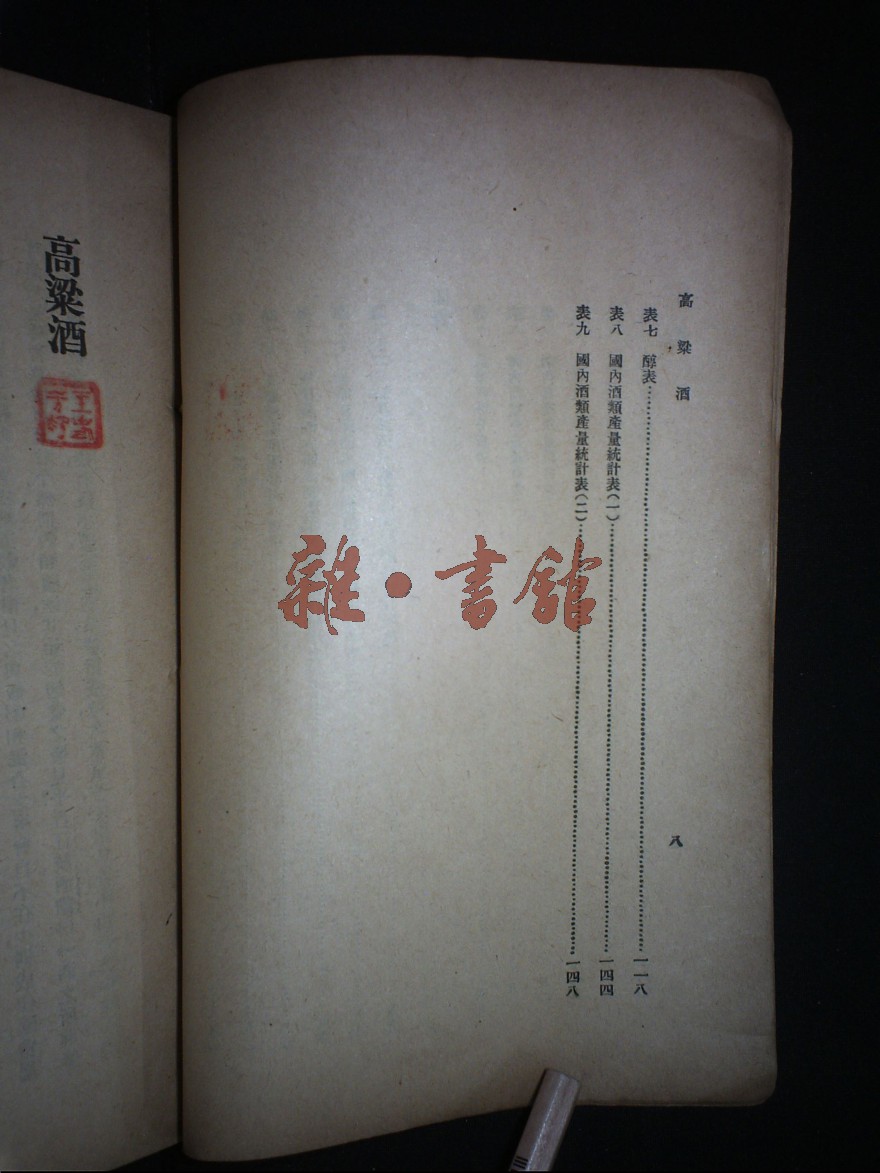 高粱酒
八
表七　醇表……一一八
表八　國內酒類產量統計表(一)……一四四
表九　國內酒類產量統計表(二)……一四八
高粱酒
雜·書館